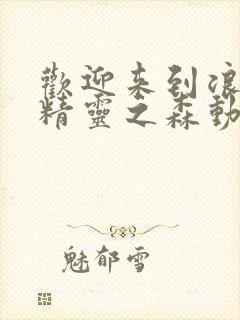 歡迎来到浪
精靈之森動
魅郁雪